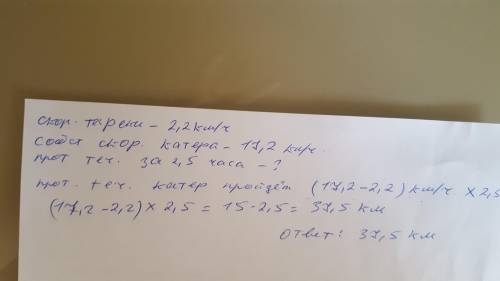 скор. течени – 2,2 км/ч
собст скор. катера – 17,2 км/ч.
прот теч. за 2,5 часа – ?
прот. теч. катер пройдёт (17,2–2,2) км/ч × 2,5
(17,2 – 2,2) × 2,5 = 15 · 2,5 = 37,5 км
ответ: 37,5 км